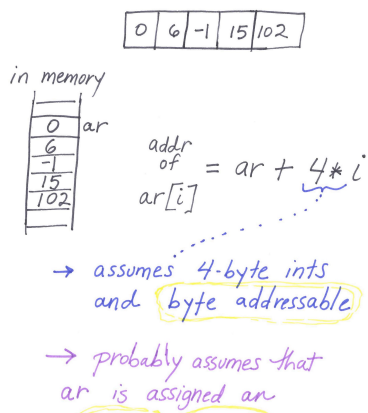 0 6 -1 15 102
in memory
0 ar
6
-1
15
102
addr
of
ar[i]
= ar + 4* i
→ assumes 4-byte ints
and byte addressable
→ probably assumes that
ar is assigned an